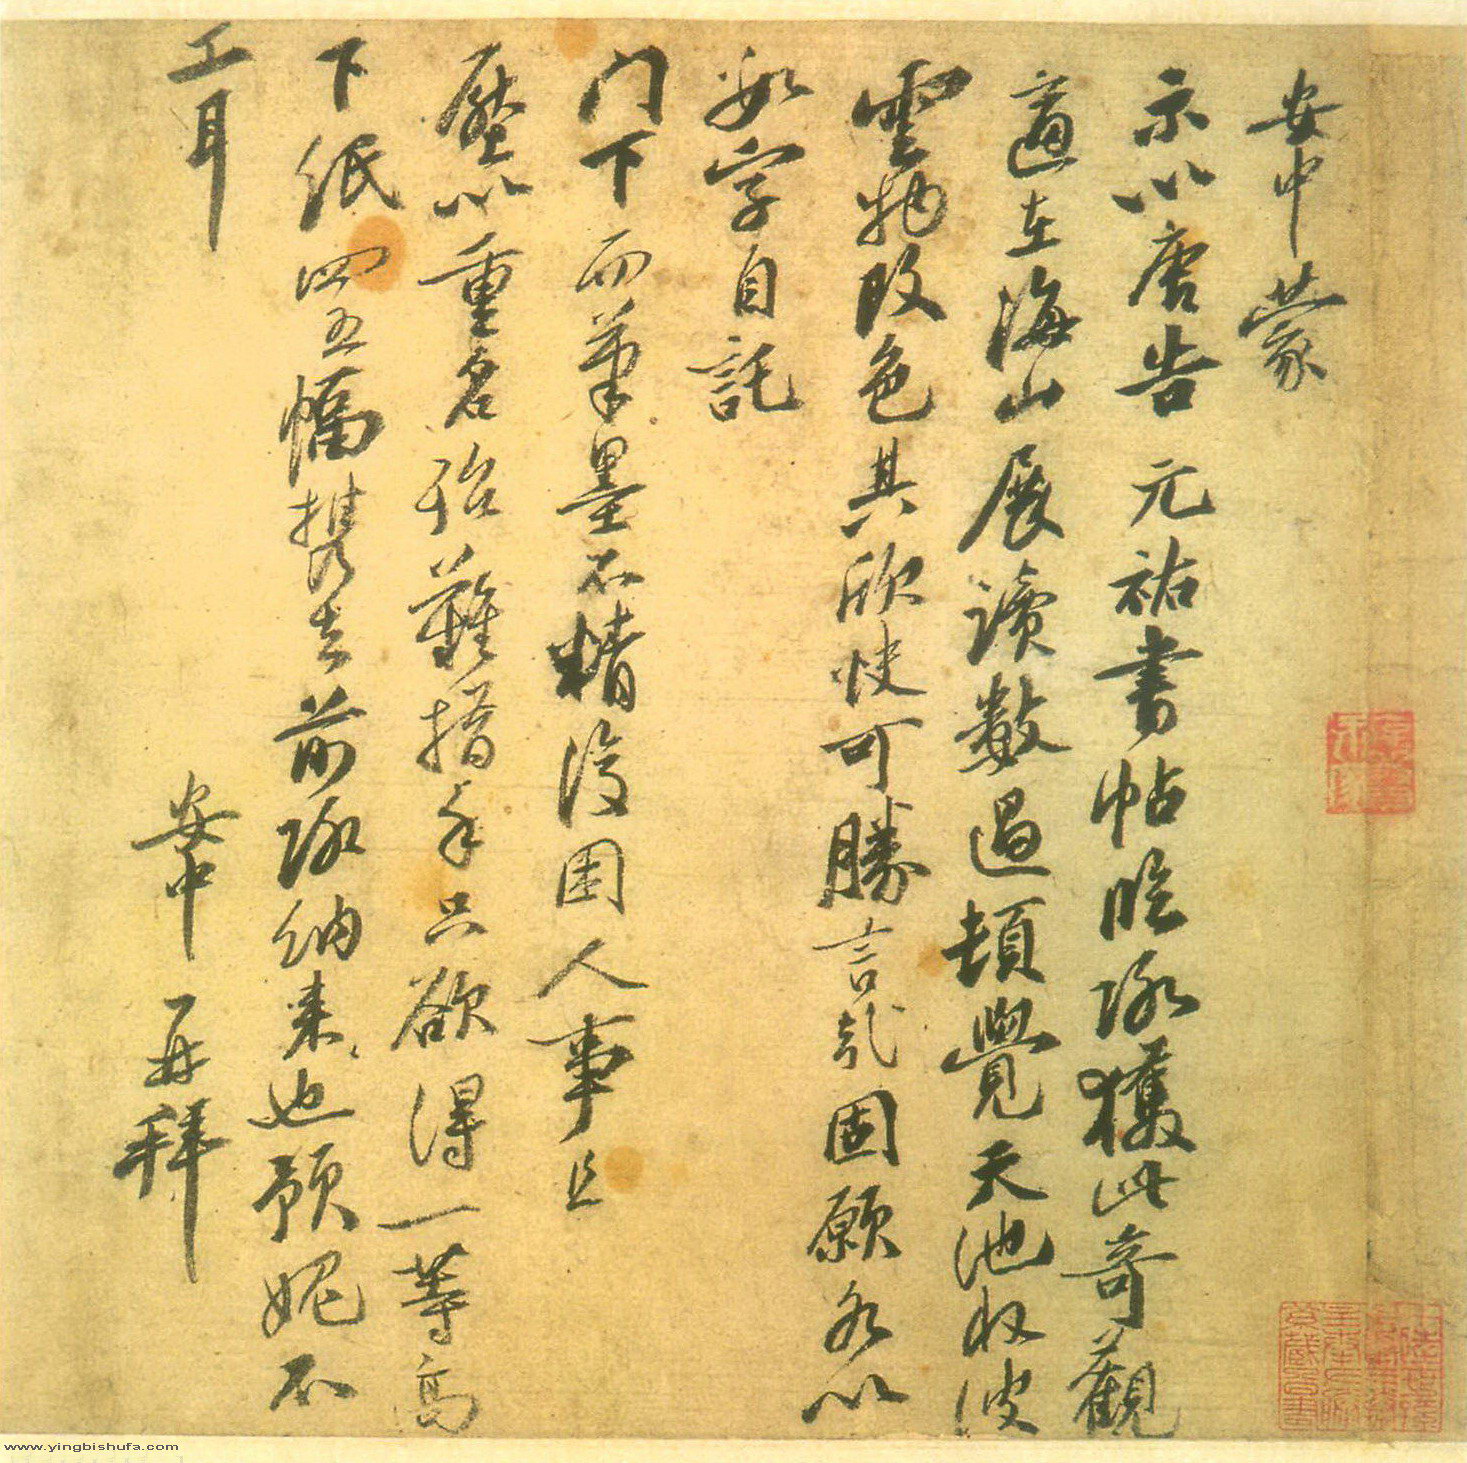 安中蒙
示以唐告元祐書帖臨獲此奇觀
適在海山展讀數過頓覺天池收波
雲物改色其欣快可勝言哉固願以
數字自託
门下而筆墨不精復困人事且
壓以重名殆難措手只欲得一等高
下紙四五幅携去前納来也預媿不
工耳
安中再拜
www.yingbishufa.com